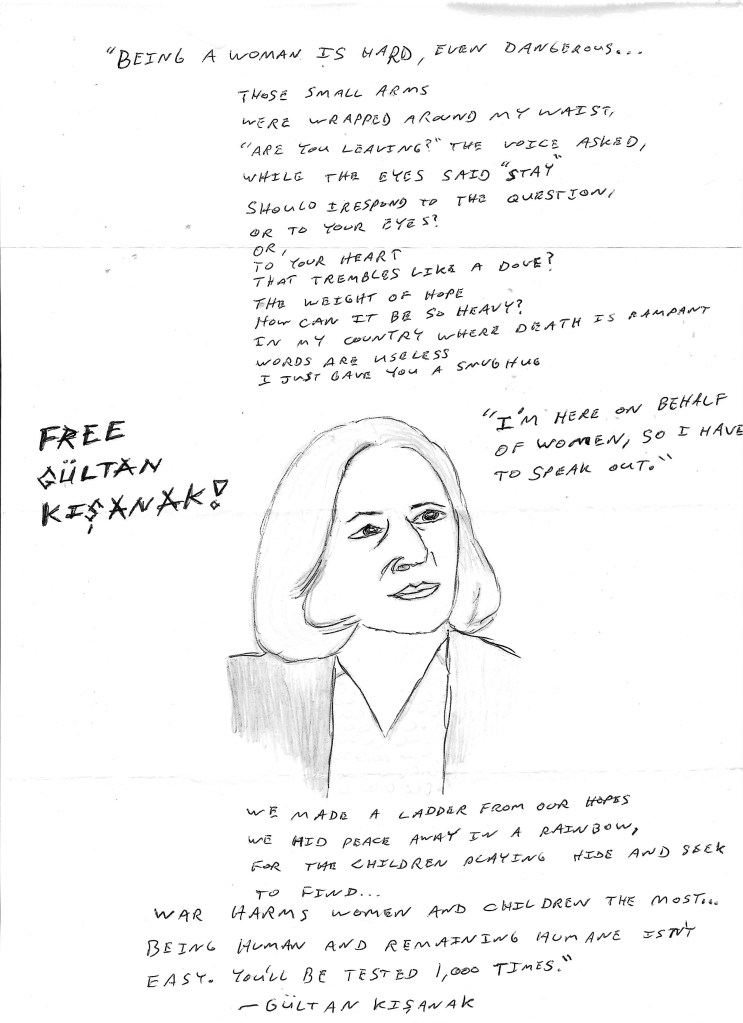 "BEING A WOMAN IS HARD, EVEN DANGEROUS...
THOSE SMALL ARMS
WERE WRAPPED AROUND MY WAIST,
"ARE YOU LEAVING?" THE VOICE ASKED,
WHILE THE EYES SAID "STAY"
SHOULD I RESPOND TO THE QUESTION,
OR TO YOUR EYES?
OR,
TO YOUR HEART
THAT TREMBLES LIKE A DOVE?
THE WEIGHT OF HOPE
HOW CAN IT BE SO HEAVY?
IN MY COUNTRY WHERE DEATH IS RAMPANT
WORDS ARE USELESS
I JUST GAVE YOU A SNUG HUG
FREE
GÜLTAN
KIŞANAK!
"I'M HERE ON BEHALF
OF WOMEN, SO I HAVE
TO SPEAK OUT."
WE MADE A LADDER FROM OUR HOPES
WE HID PEACE AWAY IN A RAINBOW,
FOR THE CHILDREN PLAYING HIDE AND SEEK
TO FIND...
WAR HARMS WOMEN AND CHILDREN THE MOST...
BEING HUMAN AND REMAINING HUMANE ISN'T
EASY. YOU'LL BE TESTED 1,000 TIMES."
—GÜLTAN KIŞANAK